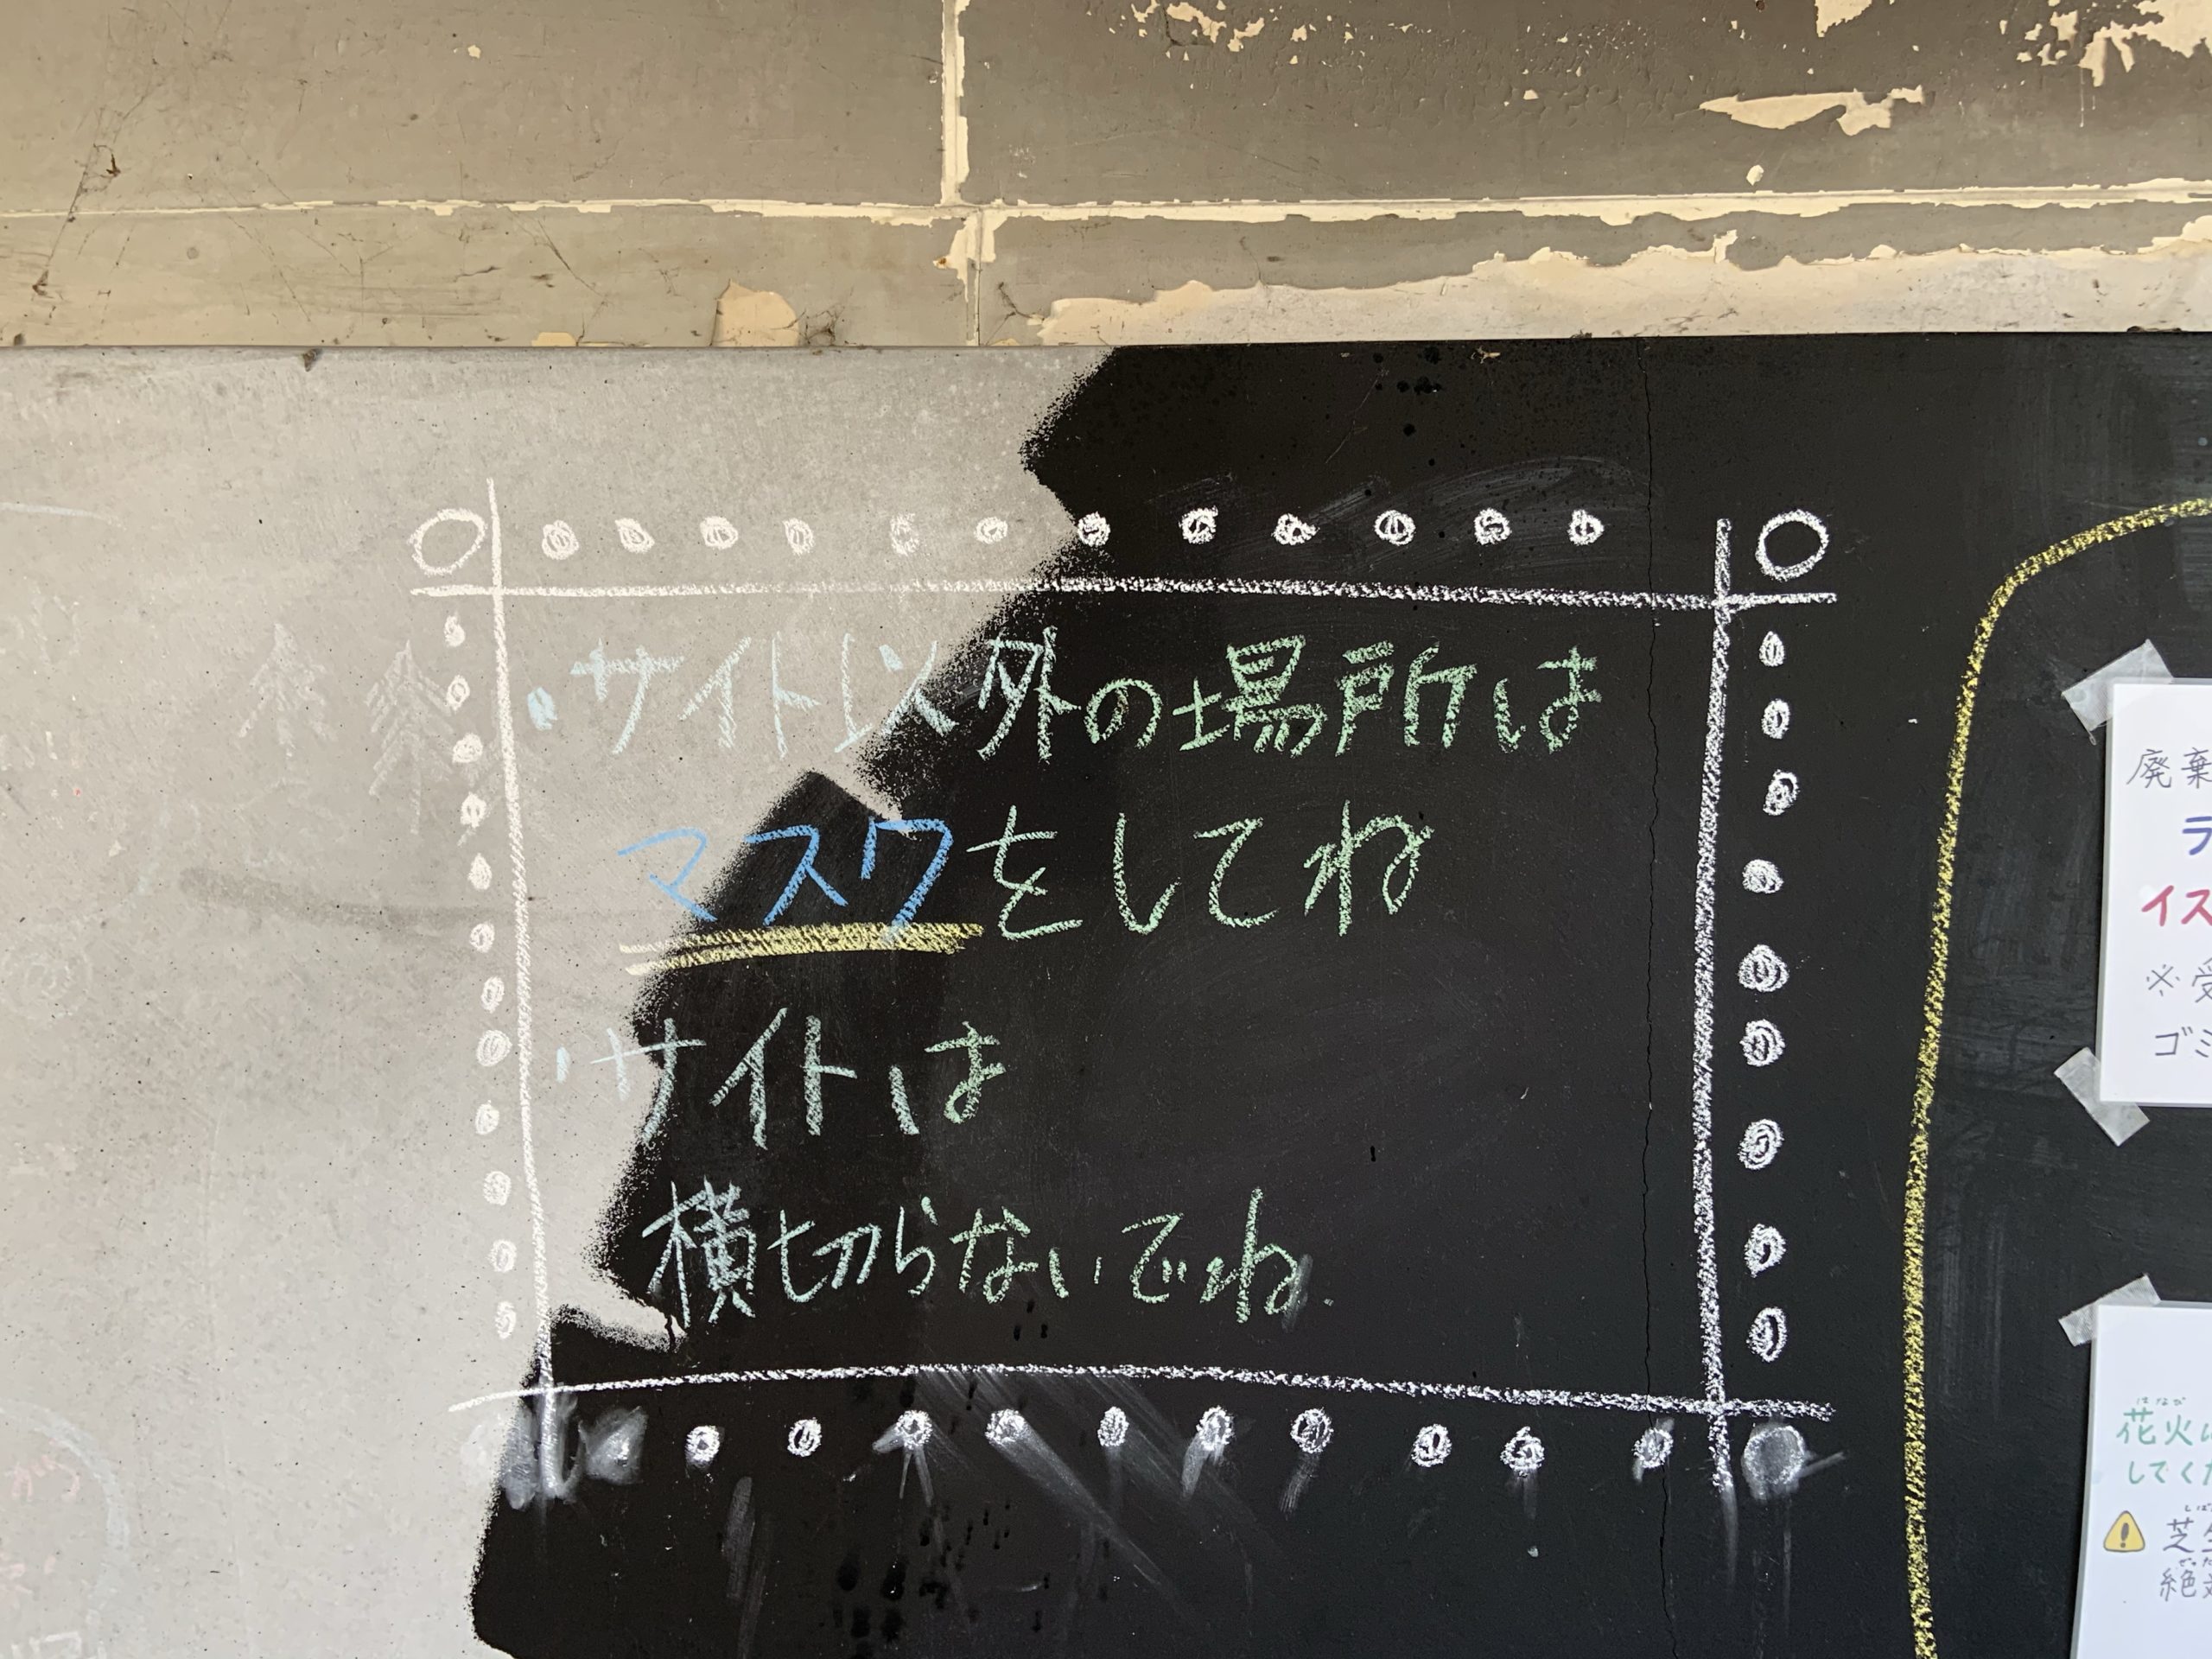 ・サイト以外の場所は
マスクをしてね
・サイトは
横切らないでね.
廃棄
ラ
イス
※受
ゴミ
花火
はなび
してくだ
芝生
絶対